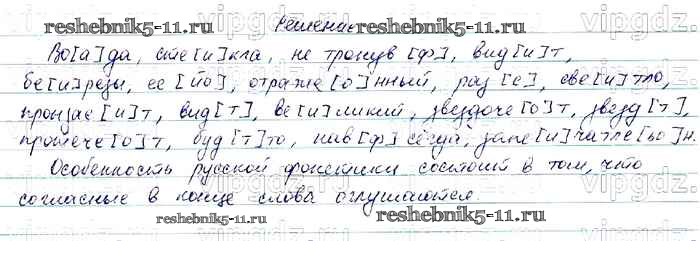 reshebnik5-11.ru
Решение
reshebnik5-11.ru
Во[а]да, сте[и]кла, не тронув [ф], вид[и]т,
бе[и]резы, ее [йо], отраже[о]нный, раз [с], све[и]тло,
пронзае[и]т, вид[т], ве[и]ликий, звездоче[о]т, звезд[т],
протече[о]т, буд[т]то, нав[ф]сегда, запе[и]чатле[ьо]н.
Особенность русской фонетики состоит в том, что
согласные в конце слова оглушаются.
reshebnik5-11.ru
reshebnik5-11.ru
vipgdz.ru